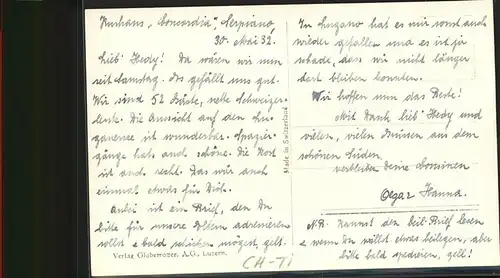 Kurhaus „Concordia", Serpiano,
30. Mai 32.
Lieb' Hedy! Da wären wir nun
seit Samstag. Es gefällt uns gut.
Wir sind 52 Gäste, nette Schweizer-
leute. Die Aussicht auf den Lu-
ganersee ist wunderbar. Spazier-
gänge hat's auch schöne. Die Kost
ist auch recht. Das wär auch
einmal etwas für Dich.
Anbei ist ein Brief, den Du
bitte für unsere Eltern adressieren
sollst & bald schicken mögest, gelt.
Verlag Globetrotter, A.G., Luzern.
CH-TI
Made in Switzerland
In Lugano hat es mir sonst auch
wieder gefallen und es ist ja
schade, dass wir nicht länger
dort bleiben konnten.
Wir hoffen nun das Beste!
Mit Dank lieb' Hedy und
vielen, vielen Grüssen aus dem
schönen Süden
verbleiben Deine Cousinen
Olga & Hanna.
N.B. Kannst den beil. Brief lesen
& wenn Du willst etwas beilegen, aber
bitte bald spedieren, gell!